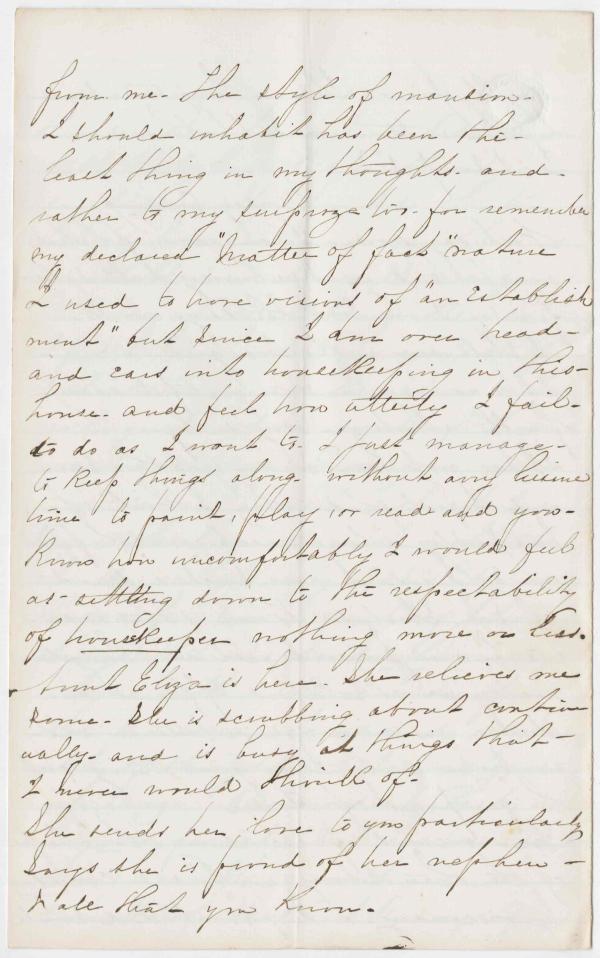 from me - The style of mansion -
I should inhabit has been the -
least thing in my thoughts - and -
rather to my surprize too - for remember
my declared "Matter of fact" nature
I used to have visions of "an Establish
ment" but since I am over head -
and ears into housekeeping in this -
house - and feel how utterly I fail -
to do as I want to - I just manage -
to keep things along - without any liesure
time to paint, play, or read and you -
know how uncomfortably I would feel
as - settling down to the respectability
of housekeeper nothing more or less.
Aunt Eliza is here - She relieves me
some - She is scrubbing about contin
ually - and is busy at things that -
I never would think of -
She sends her love to you particularly
Says she is proud of her nephew -
& all that you know -